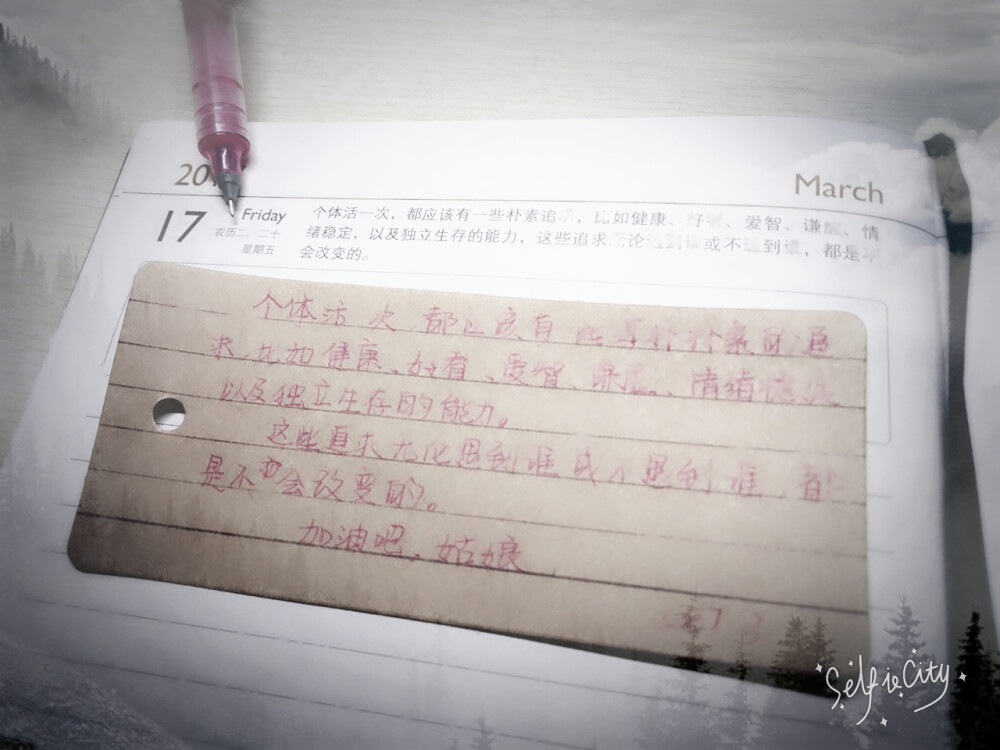 March
17 Friday
星期五
个体活一次，都应该有一些朴素追，比如健康、、爱智、谦、情
绪稳定，以及独立生存的能力，这些追求论到或不遇到谁，都是
会改变的。
个体活次都应该有些朴素的追
求,比如健康、好看、爱智、、情绪稳
以及独立生存的能力。
这些追求无论遇到谁或不遇到谁,都
是不会改变的。
加油吧,姑娘
Selfie City